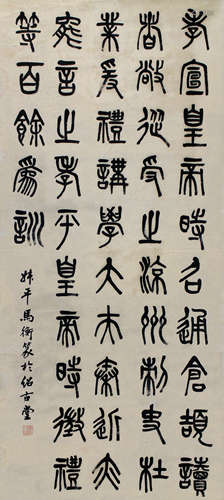 孝宣皇帝時召通倉頡讀
者敞從受之涼州刺史杜
業爰禮講學大夫秦近亦
能言之孝平皇帝時徵禮
等百餘為訓
叔平馬衡篆於紹古堂